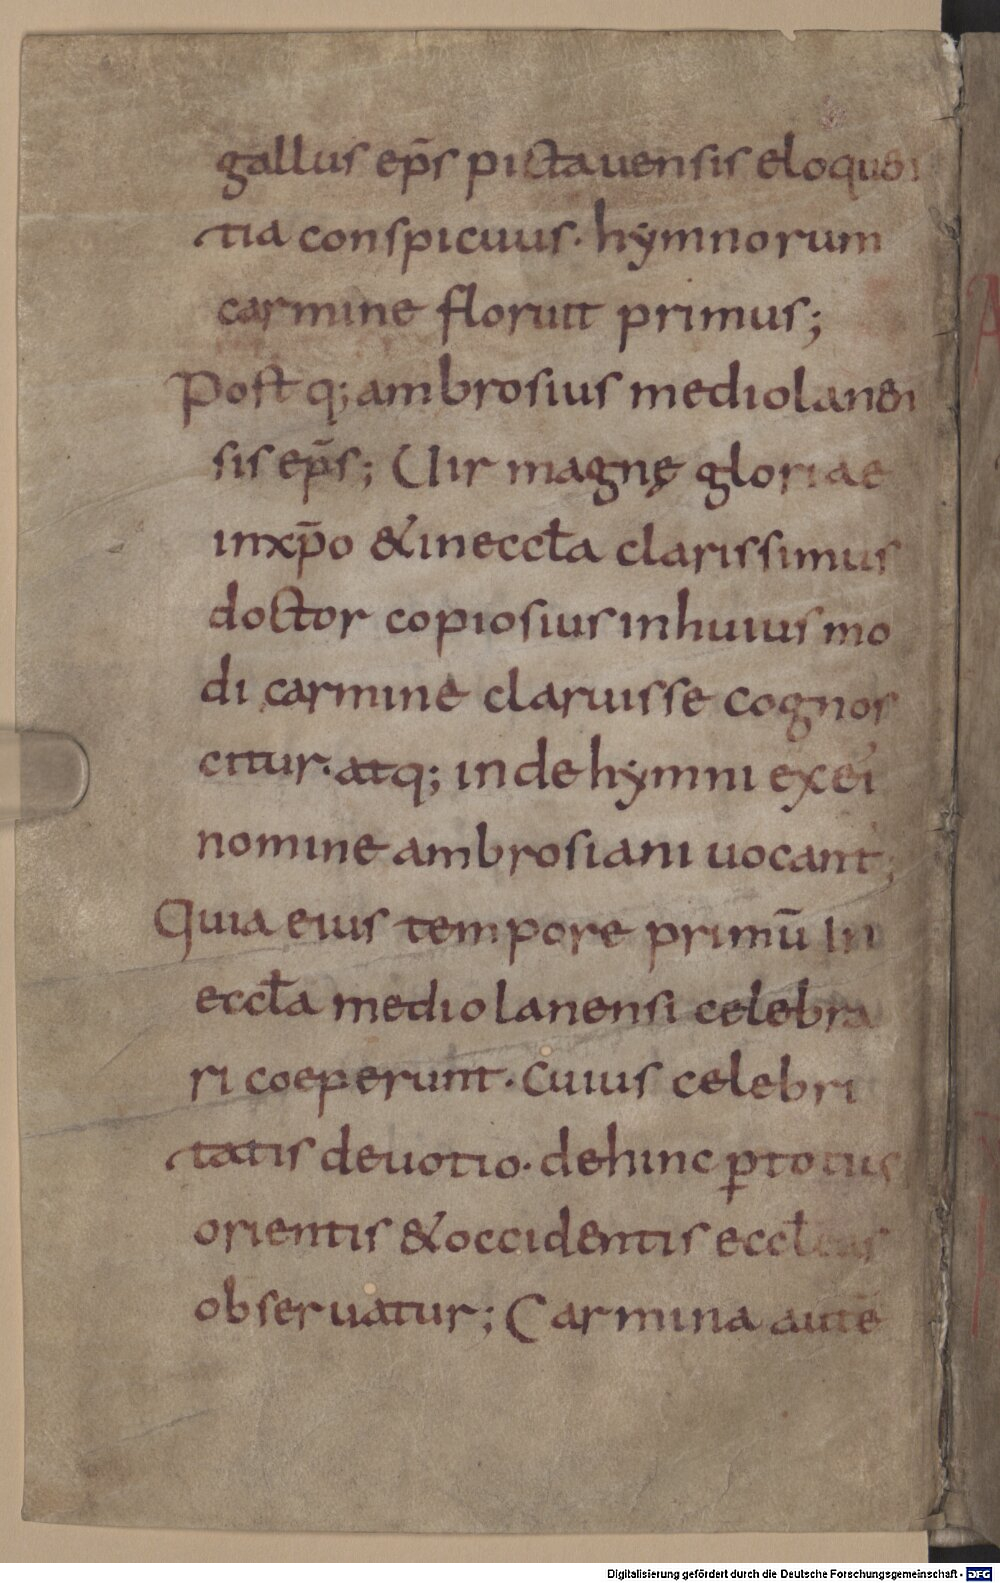 gallus ep̄s pictauensis eloquen
tia conspicuus · hymnorum
carmine floruit primus;
Post q; ambrosius mediolanen
sis ep̄s; Uir magnę gloriae
inxp̄o & ineccl̄a clarissimus
doctor copiosius inhuius mo
di carmine claruisse cognos
citur · atq; inde hymni exei
nomine ambrosiani uocant;
Quia eius tempore primū In
eccl̄a mediolanensi celebra
ri coeperunt · Cuius celebri
tatis deuotio · dehinc ꝑ totius
orientis & occidentis eccl̄eias
obseruatur; Carmina autē
Digitalisierung gefördert durch die Deutsche Forschungsgemeinschaft - DFG